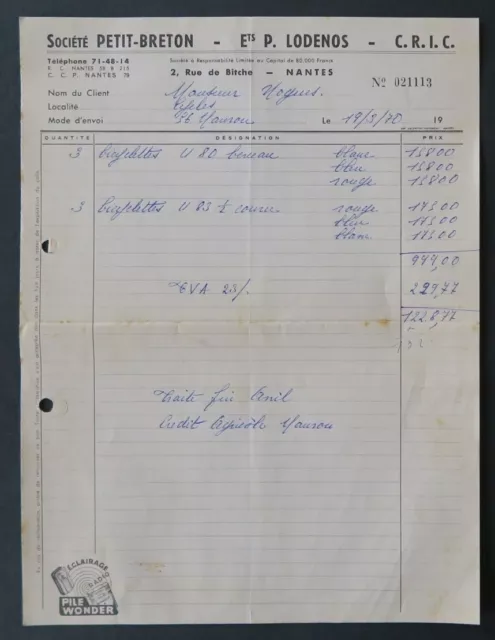 SOCIÉTÉ PETIT-BRETON - ETS P. LODENOS - C.R.I.C.
Téléphone 71-48-14
R. C. NANTES 58 B 215
C. C. P. NANTES 78
Société à Responsabilité Limitée au Capital de 80.000 Francs
2, Rue de Bitche - NANTES
No 021113
Nom du Client Monsieur
Localité
Mode d'envoi Mauron Le 19/3/70 19
QUANTITÉ DESIGNATION PRIX
3 bicyclettes U 80 berceau blanc 158.00
bleu 158.00
rouge 158.00
3 bicyclettes U 83 ½ course rouge 175.00
bleu 175.00
blanc 175.00
999,00
TVA 23% 229,77
1228,77
Traite fin Avril
Crédit Agricole Mauron
ECLAIRAGE
RADIO
PILE
WONDER